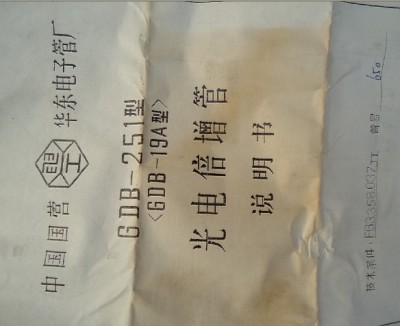 中国国营 华东电子管厂
GDB-251型
<GDB-19A型>
光电倍增管
说明书
技术条件：FB3358037JT 管号 650